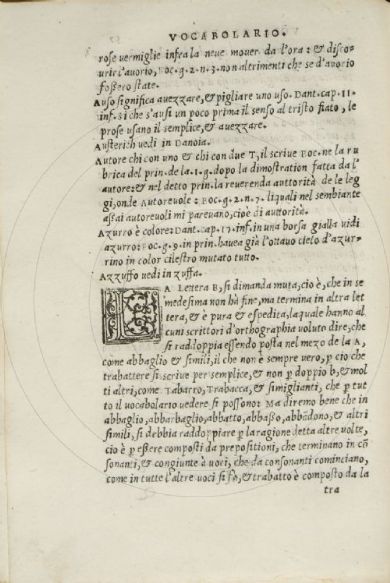 VOCABOLARIO.
rose vermiglie infra la neue mouer da l'ora: & disco-
urir l'auorio, BOC.g.2.n.3.non altrimenti che se d'auorio
fossero state.
Auso significa auezzare, & pigliare uno uso. Dant.cap.11.
inf.Si che s'ausi un poco prima il senso al tristo fiato, le
prose usano il semplice, & auezzare.
Austerich uedi in Danoia.
Autore chi con uno & chi con due T, il scriue BOC.ne la ru
brica del prin.de la.1.g.dopo la dimostration fatta da l'
autore: & nel detto prin.la reuerenda auttorità de le leg
gi, onde Autoreuole: BOC.g.2.n.7. li quali nel sembiante
assai autoreuoli mi pareuano, cioè di auttorità.
Azurro è colore: Dant.cap.17.inf.in una borsa gialla uidi
azurro: BOC.g.9.in prin.hauea già l'ottauo cielo d'azur-
rino in color cilestro mutato tutto.
Azzuffo uedi in zuffa.
LA Lettera B, si dimanda muta, cio è, che in se
medesima non hà fine, ma termina in altra let
tera, & è pura & espedica, la quale hanno al
cuni scrittori d'orthographia voluto dire, che
si raddoppia essendo posta nel mezo de la A,
come abbaglio & simili, il che non è sempre vero, p cio che
trabattere si scriue per semplice, & non p doppio b, & mol
ti altri, come Tabarro, Trabacca, & simiglianti, che p tut
to il vocabolario uedere si possono: Ma diremo bene che in
abbaglio, abbarbaglio, abbatto, abbasso, abbãdono, & altri
simili, si debbia raddoppiare p la ragione detta altre volte,
cio è p essere composti da prepositioni, che terminano in cõ
sonanti, & congiunte à voci, che da consonanti cominciano,
come in tutte l'altre uoci si fà, & trabatto è composto da la
tra